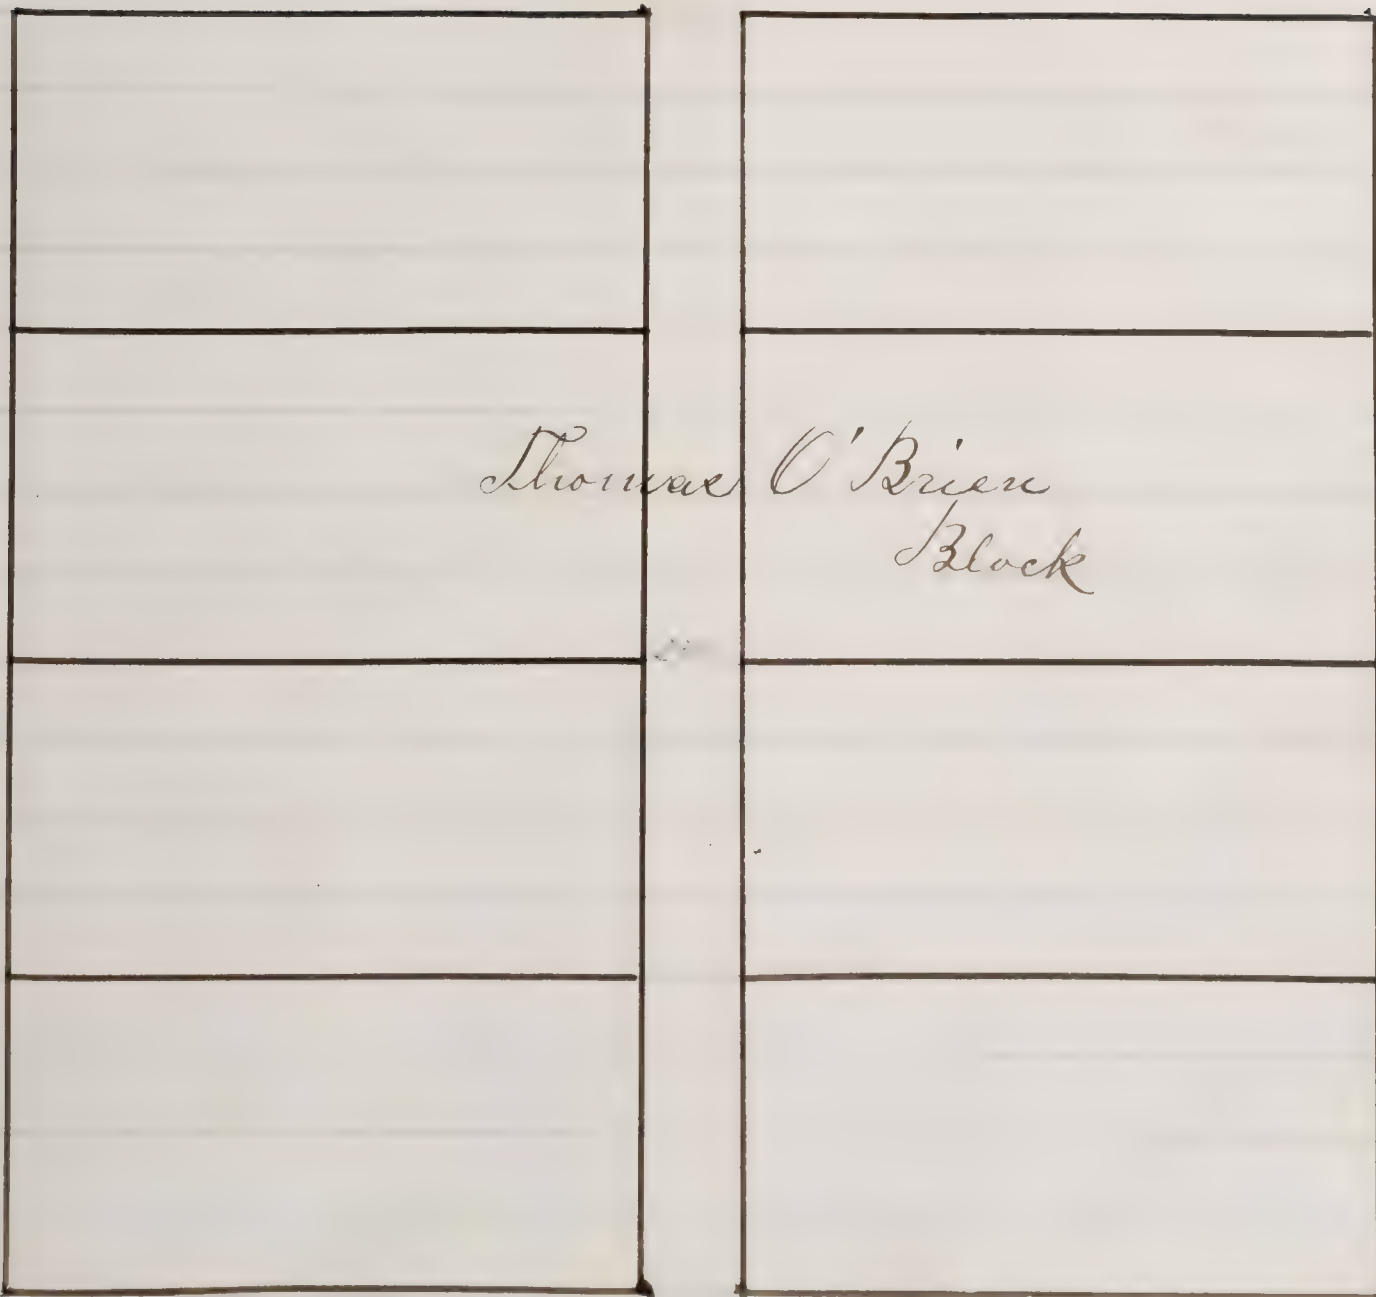 Thomas O'Brien
Block